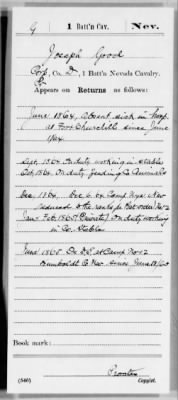 G 1 Batt'n Cav. Nev.
Joseph Good
Co. D, 1 Batt'n Nevada Cavalry.
Appears on Returns as follows:
June 1864, Absent sick in Hosp.
at Fort Churchill since June
/64.
Sept. 1864 On duty working in stables
Oct. 1864. On duty feeding Co. Animals
Dec 1864, Dec 6. 64 Camp Nye Nev
reduced to the ranks
Jan & Feb. 1865 (Private) On duty working
in Co. Stables
June 1865 On D.S. at Camp No 12
Humboldt Nev since June
Book mark:
(546)
Copyist.